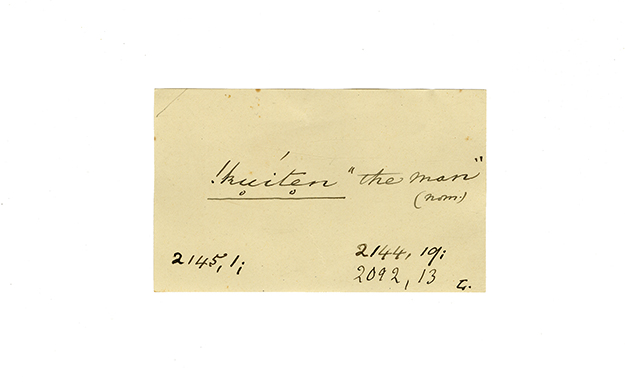 !kuíten "the man"
(nom.)
2145, 1; 2144, 19;
2092, 13 L.